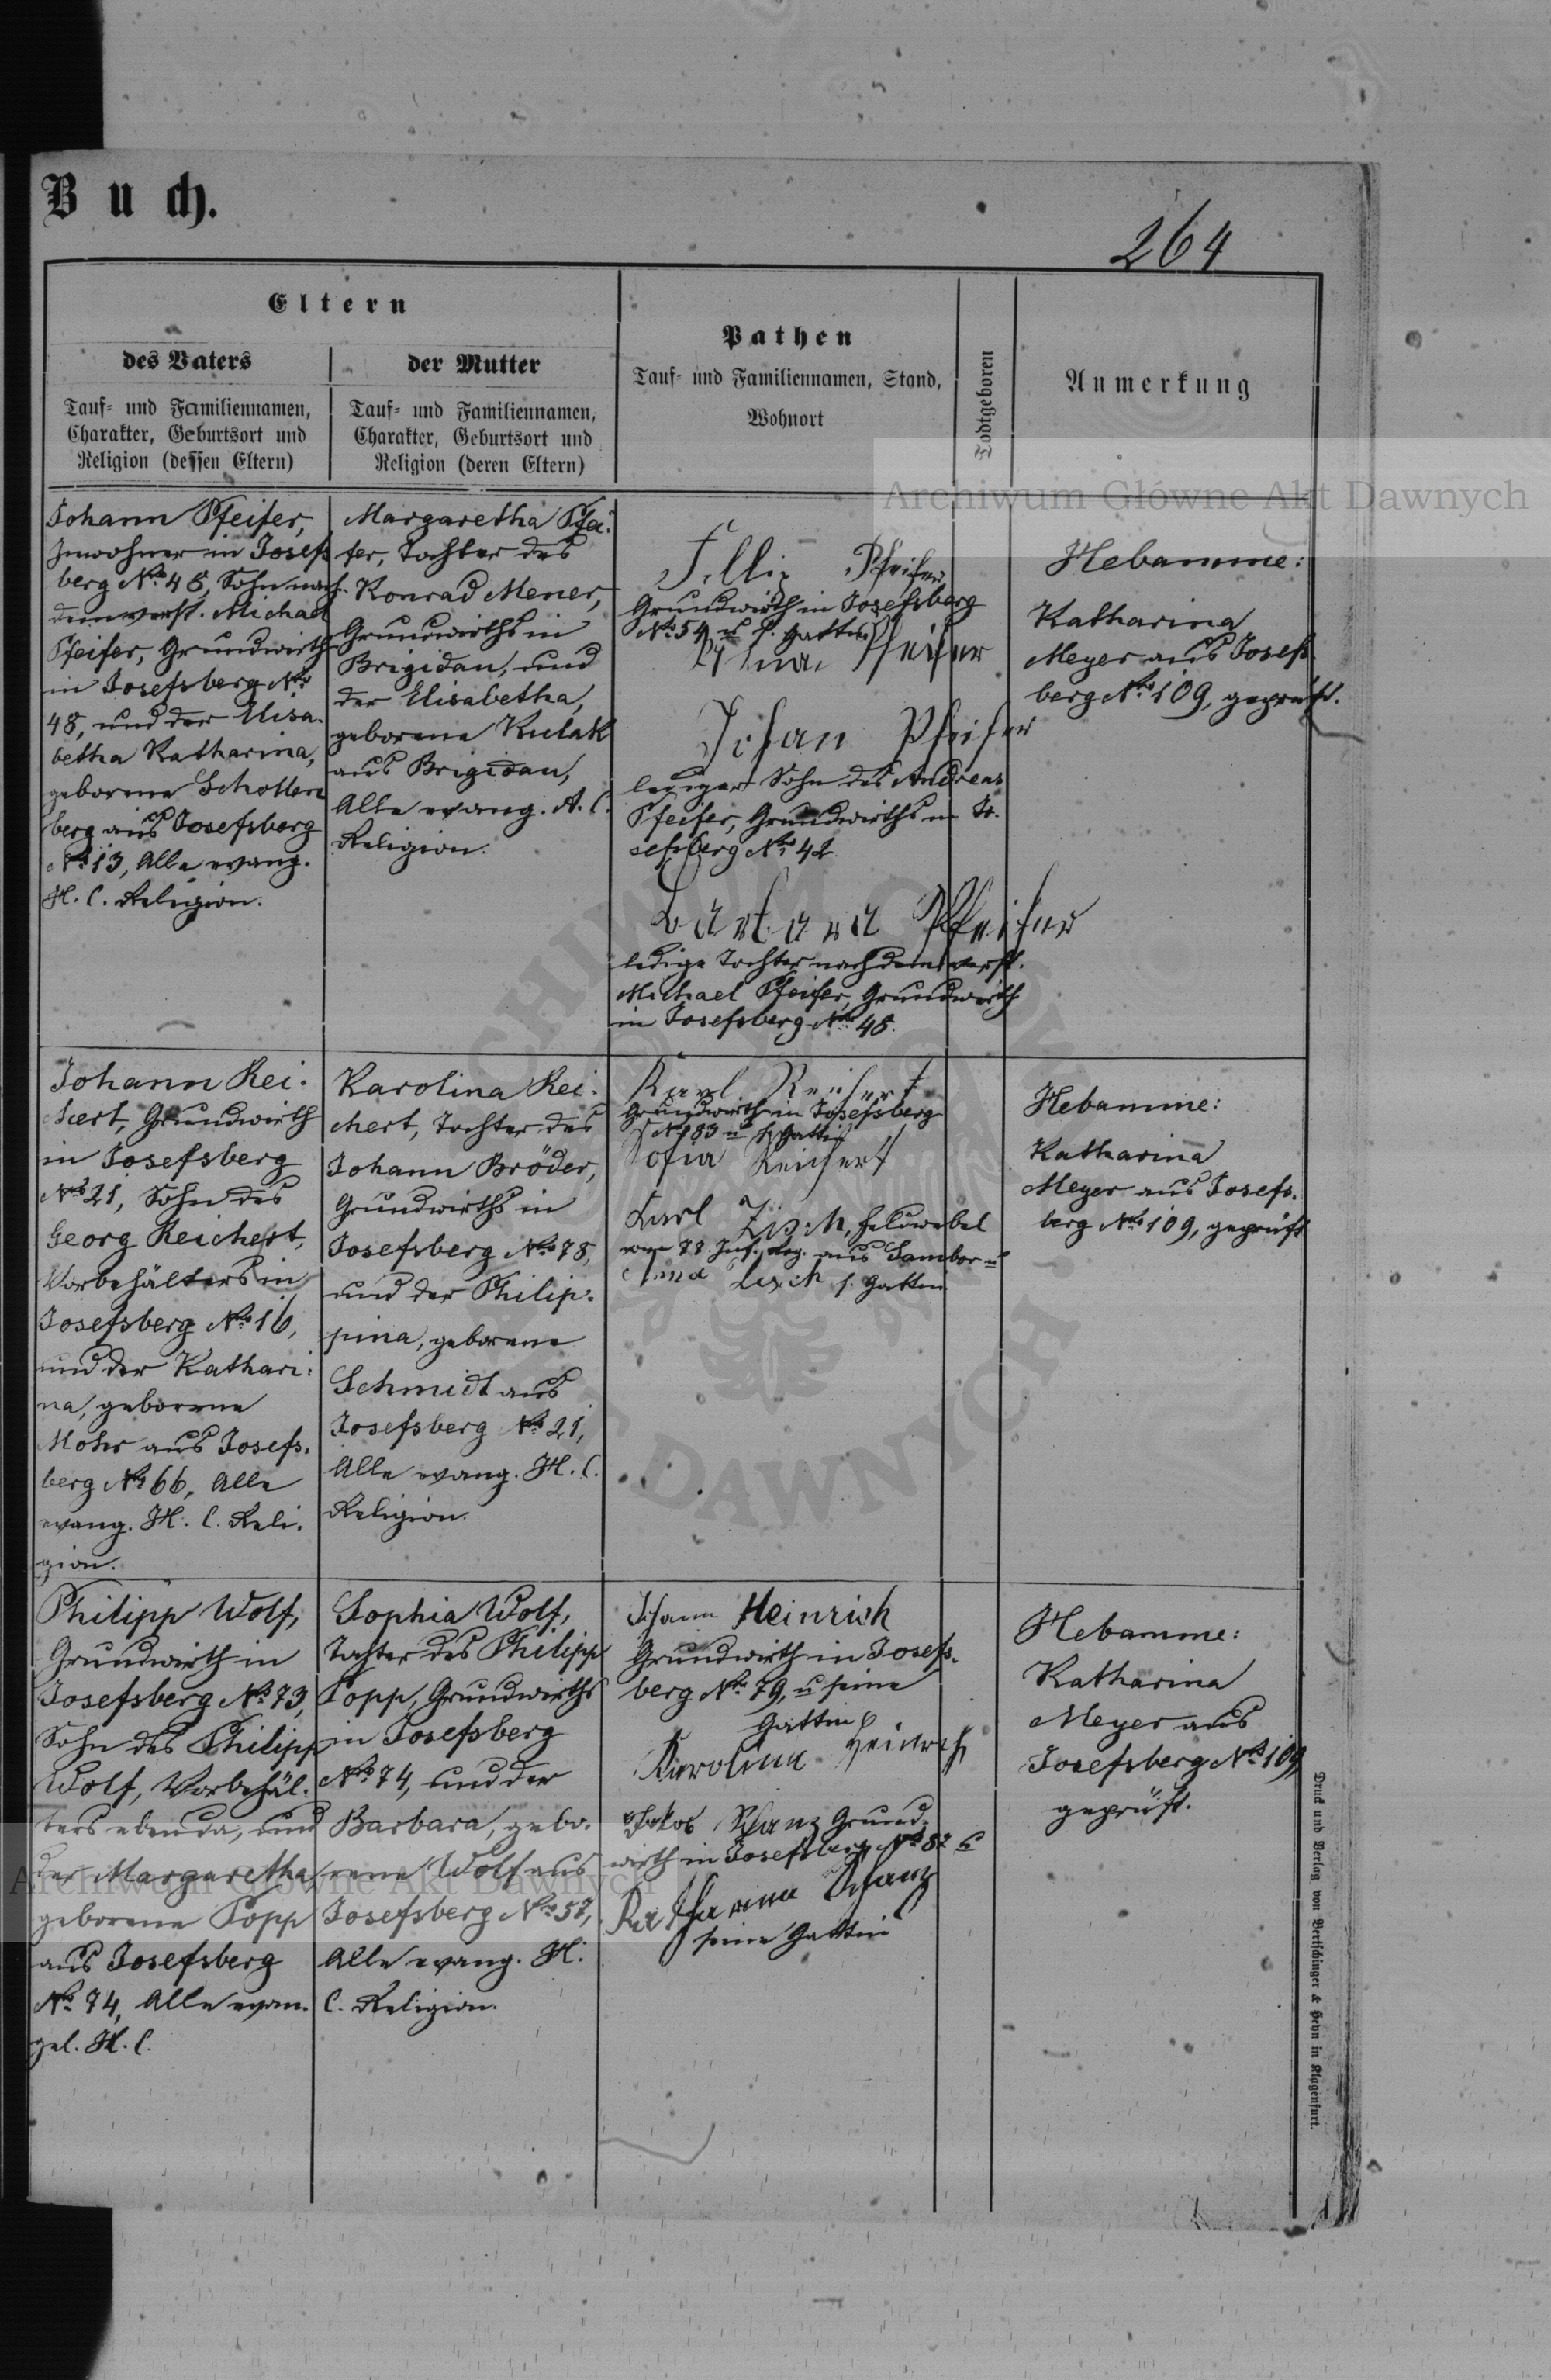 Buch.
264
Eltern
des Vaters
Tauf- und Familiennamen,
Charakter, Geburtsort und
Religion (dessen Eltern)
der Mutter
Tauf- und Familiennamen,
Charakter, Geburtsort und
Religion (deren Eltern)
Pathen
Tauf- und Familiennamen, Stand,
Wohnort
Todtgeboren
Anmerkung
Archiwum Główne Akt Dawnych
Johann Pfeifer,
Inwohner in Josefs
berg No 48, Sohn nach
dem verst. Michael
Pfeifer, Grundwirth
in Josefsberg No
48, und der Elisa-
betha Katharina,
geborene Schollen
berg aus Josefsberg
No 13, Alle evang.
H. C. Religion.
Margaretha Pfei-
fer, Tochter des
Konrad Mener,
Grundwirths in
Brigidau, und
der Elisabetha,
geborene Kulak
aus Brigidau,
Alle evang. A. C.
Religion.
Pfeifer,
Grundwirth in Josefsberg
No 54 u s. Gattin
Pfeifer
Johan Pfeifer
lediger Sohn des Andreas
Pfeifer, Grundwirths in Jo-
sefsberg No 42.
Barbara Pfeifer
ledige Tochter nach dem verst.
Michael Pfeifer, Grundwirth
in Josefsberg No 48.
Hebamme:
Katharina
Meyer aus Josefs
berg No 109, geprüft.
Johann Rei-
chert, Grundwirth
in Josefsberg
No 21, Sohn des
Georg Reichert,
Vorbehälters in
Josefsberg No 16,
und der Kathari-
na, geborene
Mohr aus Josefs-
berg No 66, Alle
evang. H. C. Reli-
gion.
Karolina Rei-
chert, Tochter des
Johann Bröder,
Grundwirths in
Josefsberg No 78,
und der Philip-
pina, geborene
Schmidt aus
Josefsberg No 21,
Alle evang. H. C.
Religion.
Karl Reichert
Grundwirth in Josefsberg
No 83 u s. Gattin
Sofia Reichert
Karl Feldwebel
vom Inf. Reg. aus Sambor u
Anna s. Gattin
Hebamme:
Katharina
Meyer aus Josefs-
berg No 109, geprüft
Philipp Wolf,
Grundwirth in
Josefsberg No 73,
Sohn des Philipp
Wolf, Vorbehäl-
ters ebenda, und
der Margaretha,
geborene Popp
aus Josefsberg
No 74, Alle evan-
gel. H. C.
Sophia Wolf,
Tochter des Philipp
Popp, Grundwirths
in Josefsberg
No 74, und der
Barbara, gebo-
rene Wolf aus
Josefsberg No 57,
Alle evang. H.
C. Religion.
Johann Heinrich
Grundwirth in Josefs-
berg No 79, u seine
Gattin
Karolina Heinrich
Jakob Schanz Grund-
wirth in Josefsberg No 82 u
Katharina Schanz
seine Gattin
Hebamme:
Katharina
Meyer aus
Josefsberg No 109,
geprüft.
Archiwum Główne Akt Dawnych
Druck und Verlag von Bertschinger & Heyn in Klagenfurt.